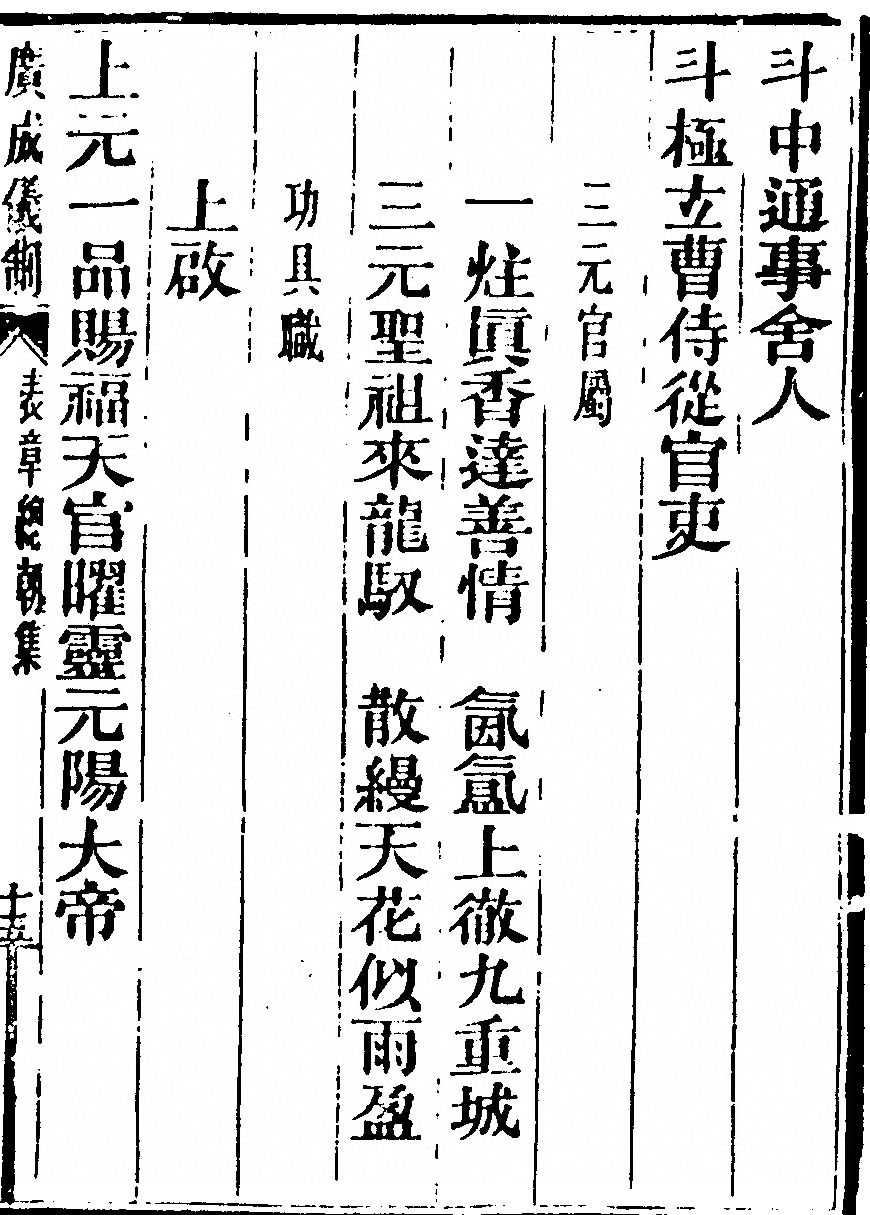 斗中通事舍人
斗極玄曹侍從官吏
三元官屬
一炷眞香達善情　氤氳上徹九重城
三元聖祖來龍馭　散縵天花似雨盈
功具職
上啟
上元一品賜福天官曜靈元陽大帝
廣成儀制　表章總朝集　十五